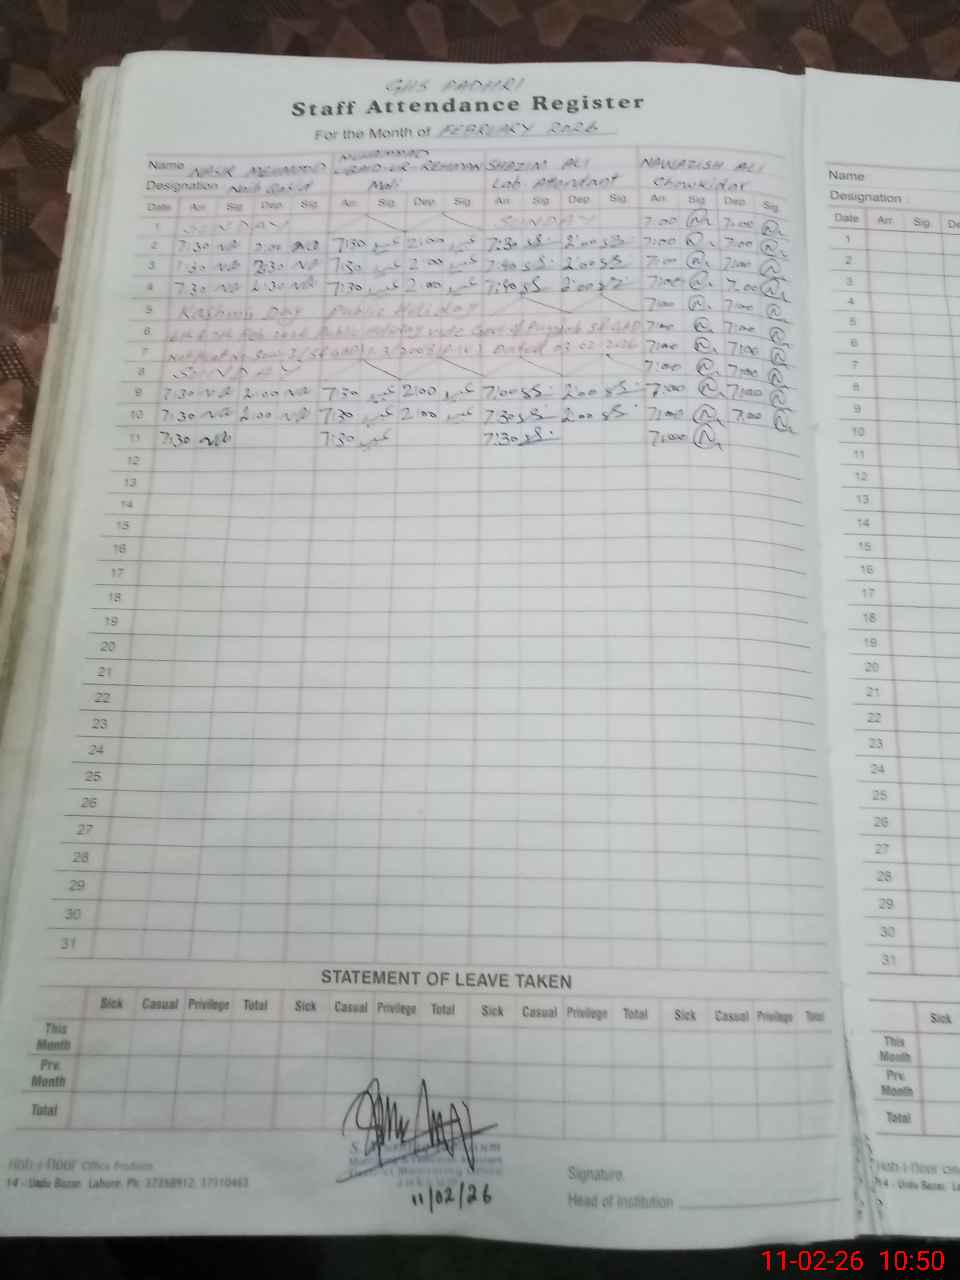 GHS PADHRI
Staff Attendance Register
For the Month of FEBRUARY 2026
Name NASIR MEHMOOD MUHAMMAD UBAID-UR-REHMAN SHAZIM ALI NAWAZISH ALI
Designation Naib Qasid Mali Lab. Attendant Chowkidar
Date Arr. Sig. Dep. Sig. Arr. Sig. Dep. Sig. Arr. Sig. Dep. Sig. Arr. Sig. Dep. Sig.
1 SUNDAY SUNDAY 7:00 7:00
2 7:30 2:00 7:30 2:00 7:30 2:00 7:00 7:00
3 7:30 2:30 7:30 2:00 7:40 2:00 7:00 7:00
4 7:30 2:30 7:30 2:00 7:40 2:00 7:00 7:00
5 Kashmir Day Public Holiday 7:00 7:00
6 Public Holiday vide Govt of Punjab 7:00 7:00
7 Dated 03.02.2026 7:00 7:00
8 SUNDAY 7:00 7:00
9 7:30 2:00 7:30 2:00 7:00 2:00 7:00 7:00
10 7:30 2:00 7:30 2:00 7:30 2:00 7:00 7:00
11 7:30 7:30 7:30 7:00
12
13
14
15
16
17
18
19
20
21
22
23
24
25
26
27
28
29
30
31
STATEMENT OF LEAVE TAKEN
Sick Casual Privilege Total Sick Casual Privilege Total Sick Casual Privilege Total Sick Casual Privilege Total
This Month
Prv. Month
Total
11/02/26
Signature
Head of Institution
Office Products
14 - Urdu Bazar, Lahore. Ph:
Name
Designation
Date Arr. Sig.
1
2
3
4
5
6
7
8
9
10
11
12
13
14
15
16
17
18
19
20
21
22
23
24
25
26
27
28
29
30
31
Sick
This Month
Prv. Month
Total
14 - Urdu Bazar, La
11-02-26 10:50